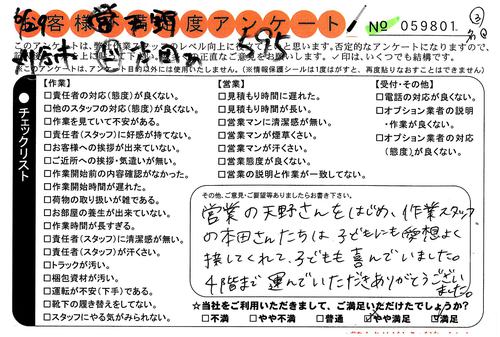 お客様不満度アンケート
No 059801
このアンケートは、
直にお聞かせください。✓印は、いくつでも結構です。
※このアンケートは、アンケート目的以外には使用いたしません。(※情報保護シールは1度がすと、再度貼りなおすことはできません)
チェックリスト
【作業】
□責任者の対応(態度)が良くない。
□他のスタッフの対応(態度)が良くない。
□作業を見ていて不安がある。
□責任者(スタッフ)に好感が持てない。
□お客様への挨拶が出来ていない。
□ご近所への挨拶・気遣いが無い。
□作業開始前の内容確認がなかった。
□作業開始時間が遅れた。
□荷物の取り扱いが雑である。
□お部屋の養生が出来ていない。
□作業時間が長すぎる。
□責任者(スタッフ)に清潔感が無い。
□責任者(スタッフ)が汗くさい。
□トラックが汚い。
□梱包資材が汚い。
□運転が不安(下手)である。
□靴下の履き替えをしてない。
□スタッフにやる気がみられない。
【営業】
□見積もり時間に遅れた。
□見積もり時間が長い。
□営業マンに清潔感が無い。
□営業マンが煙草くさい。
□営業マンが汗くさい。
□営業態度が良くない。
□営業の説明と作業が一致してない。
【受付・その他】
□電話の対応が良くない。
□オプション業者の説明
・作業が良くない。
□オプション業者の対応
(態度)が良くない。
その他、ご意見・ご要望等ありましたらお書き下さい。
営業の天野さんをはじめ、作業スタッフ
の本田さんたちは子どもにも愛想よく
接してくれて、子どもも喜んでいました。
4階まで運んでいただきありがとうござい
ました。
☆当社をご利用いただきまして、ご満足いただけたでしょうか?
□不満 □やや不満 □普通 □やや満足 □満足